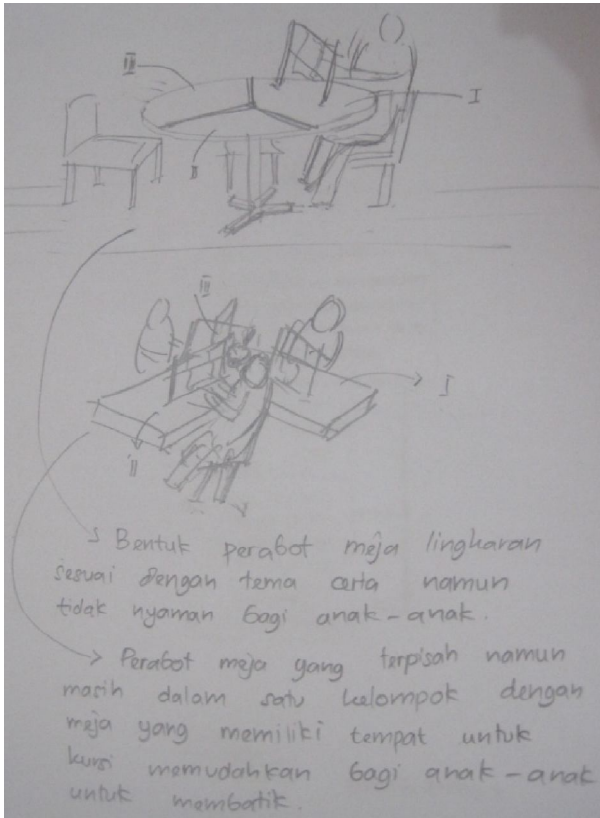 III
I
II
III
I
II
Bentuk perabot meja lingkaran
sesuai dengan tema ceria namun
tidak nyaman bagi anak-anak.
Perabot meja yang terpisah namun
masih dalam satu kelompok dengan
meja yang memiliki tempat untuk
kursi memudahkan bagi anak-anak
untuk membatik.